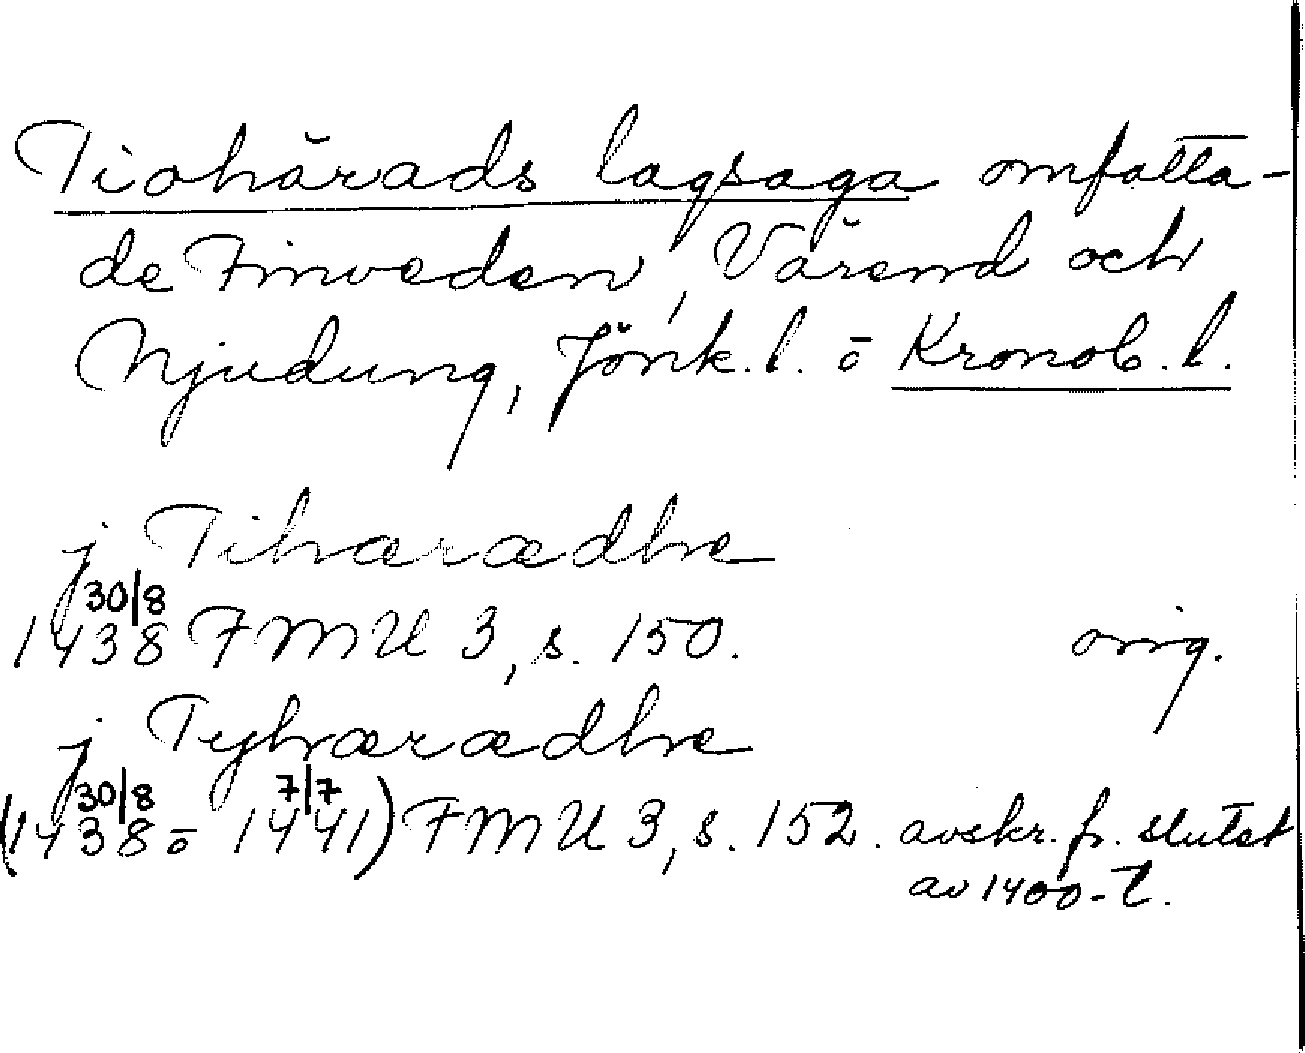 Tiohärads lagsaga omfatta-
de Finveden, Värend och
Njudung, Jönk.l. o Kronob.l.
j Tihærædhe
30/8
1438 FMU 3, s. 150. orig.
j Tyhærædhe
30/8 7/7
(1438 o 1441) FMU 3, s. 152. avskr. fr. slutet
av 1400-t.